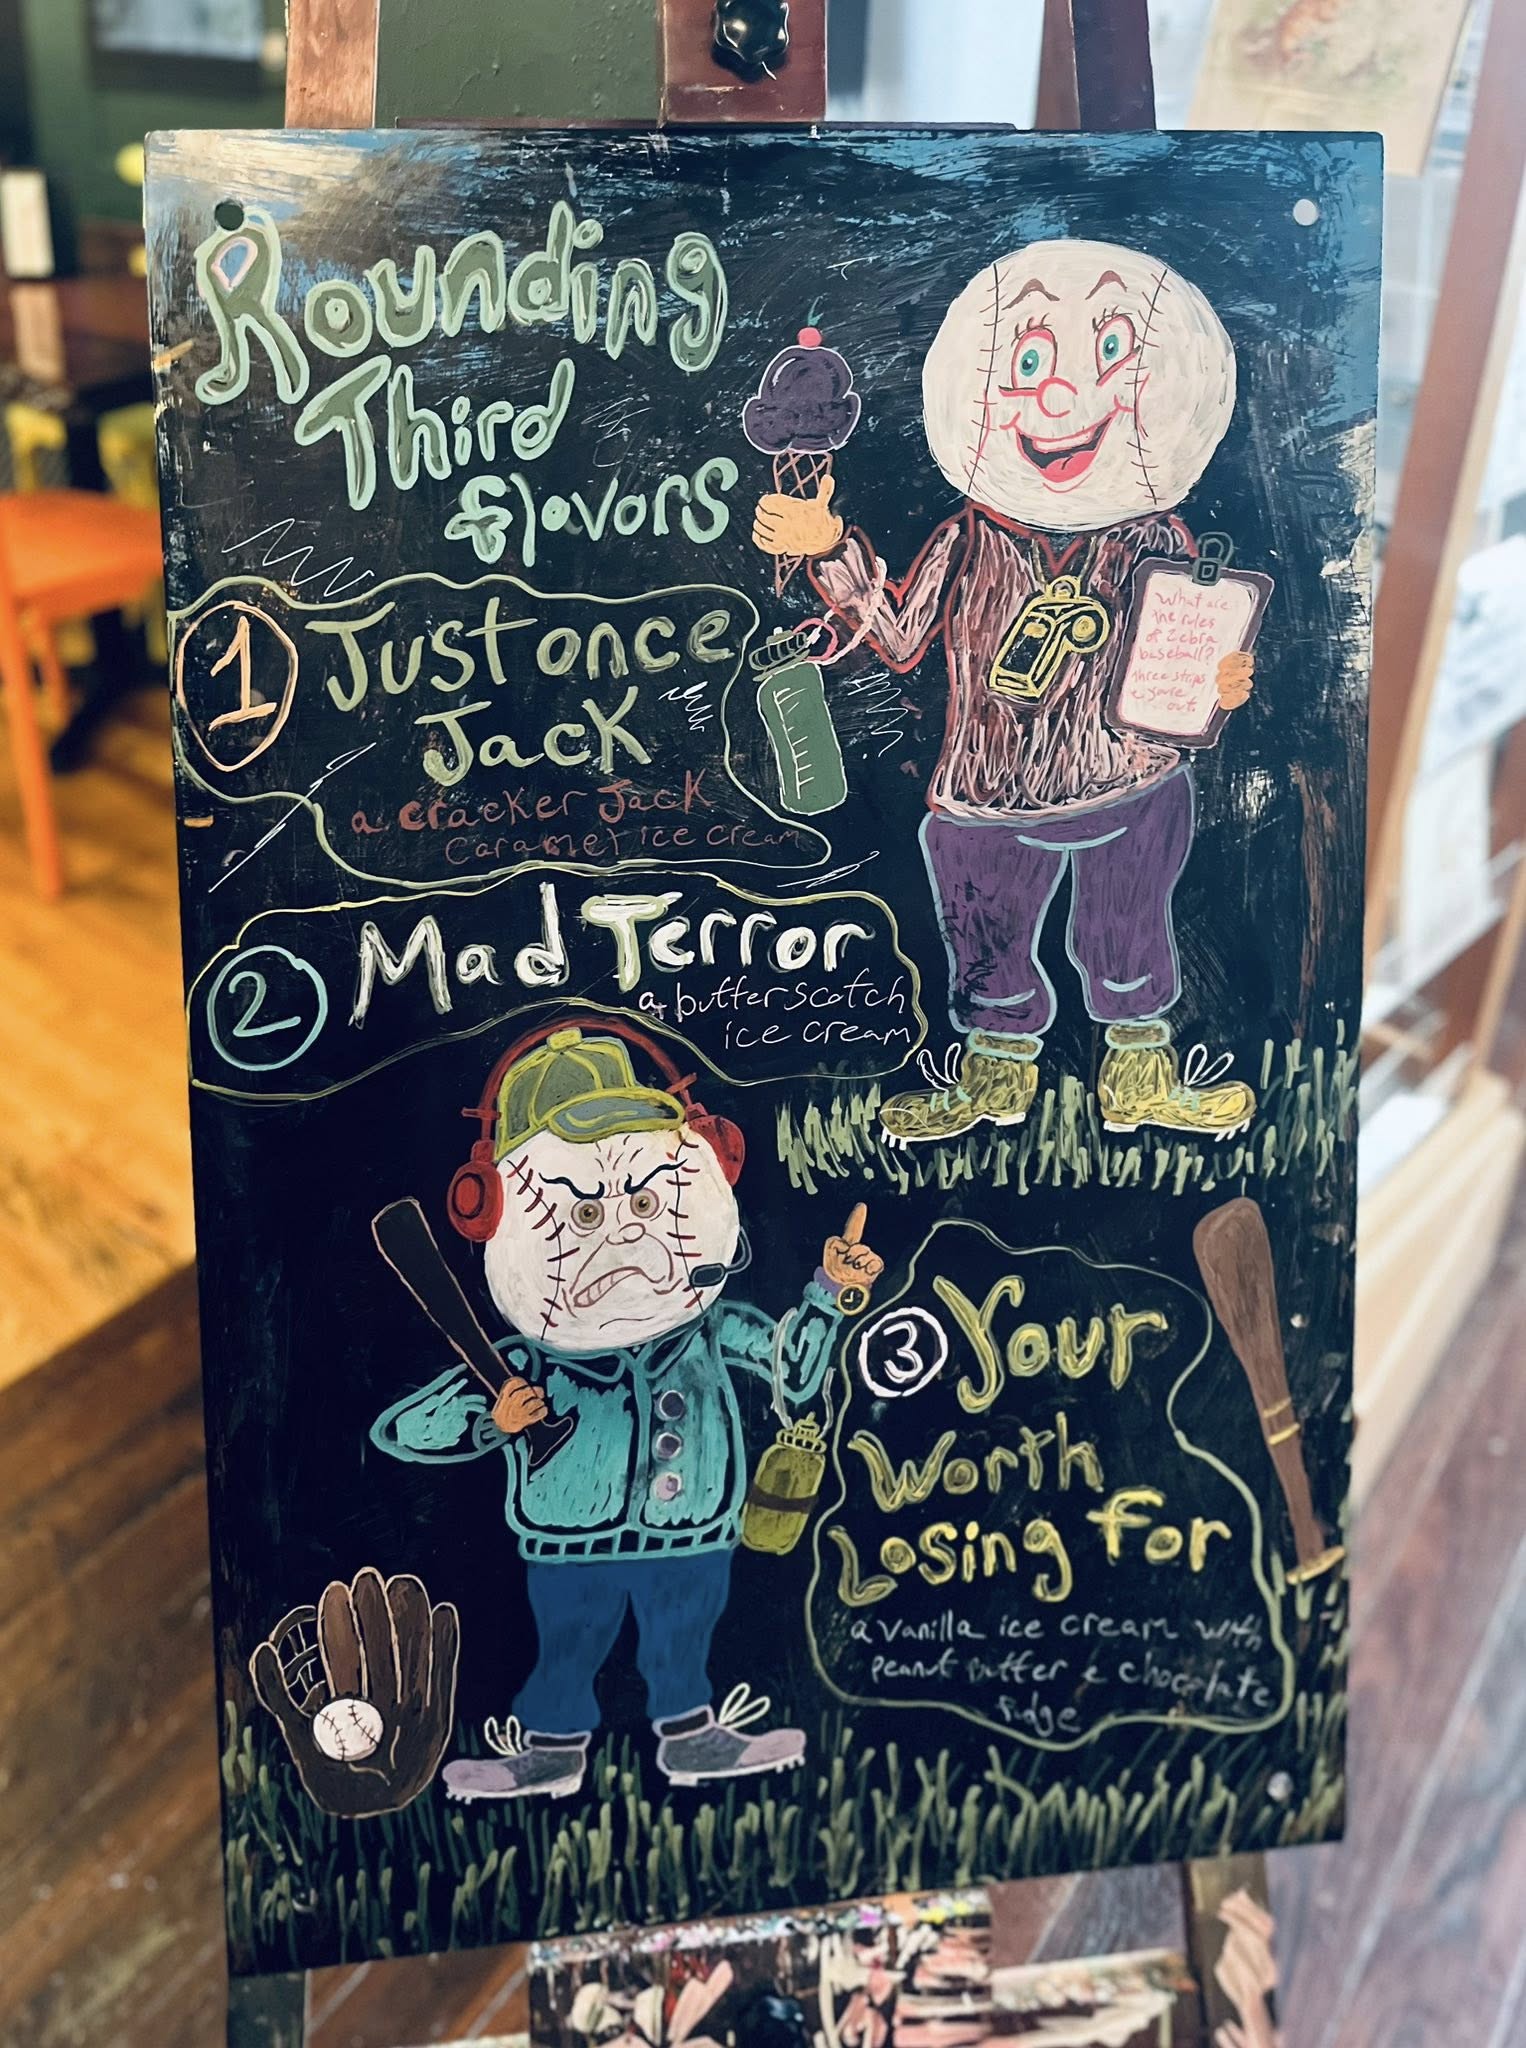 Rounding
Third
flavors
1
Just once
Jack
a cracker Jack
caramel ice cream
2
Mad Terror
a butterscotch
ice cream
What are
the rules
of Zebra
baseball?
three strips
& youre
out.
3
Your
Worth
Losing for
a vanilla ice cream with
peanut butter & chocolate
fudge